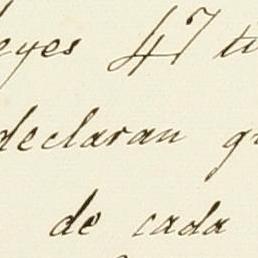 leyes 47
declaran
de cada